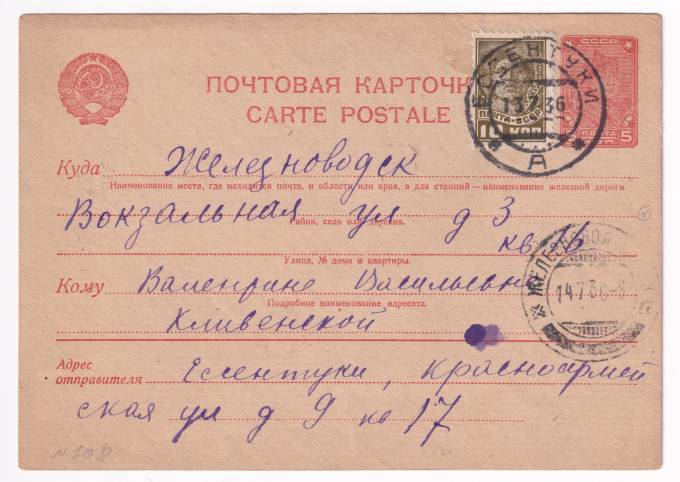 СССР
ПОЧТОВАЯ КАРТОЧК
CARTE POSTALE
ЕССЕНТУКИ
13.7.36
А
ПОЧТА-СССР
10 КОП
ПОЧТА
5
Куда Железноводск
Наименование места, где находится почта, и области или края, а для станций — наименование железной дороги
Вокзальная ул д 3
Район, село или деревня.
кв 16
Улица, № дома и квартиры.
ЖЕЛЕЗНОВОД
14.7.36-8
Кому Валентине Васильевне
Подробное наименование адресата.
Кливенской
Адрес отправителя Ессентуки, Красноармей
ская ул д 9 кв 17
№108